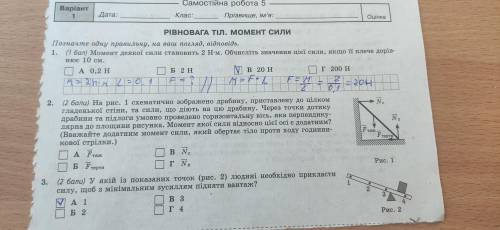 Варіант 1
Самостійна робота 5
Дата: Клас: Прізвище, ім'я: Оцінка
РІВНОВАГА ТІЛ. МОМЕНТ СИЛИ
Позначте одну правильну, на ваш погляд, відповідь.
1. (1 бал) Момент деякої сили становить 2 Н·м. Обчисліть значення цієї сили, якщо її плече дорівнює 10 см.
А 0,2 Н Б 2 Н В 20 Н Г 200 Н
L = 0,1 F = ? M = F·L F = M/L = 2/0,1 = 20Н
2. (2 бали) На рис. 1 схематично зображено драбину, приставлену до цілком
гладенької стіни, та сили, що діють на цю драбину. Через точки дотику
драбини та підлоги умовно проведено горизонтальну вісь, яка перпендикулярна
до площини рисунка. Момент якої сили відносно цієї осі є додатним?
(Вважайте додатним момент сили, який обертає тіло проти ходу годинникової
стрілки.)
А Fтяж В Nс
Б Fтертя Г Nп
Рис. 1
3. (2 бали) У якій із показаних точок (рис. 2) людині необхідно прикласти
силу, щоб з мінімальним зусиллям підняти вантаж?
А 1 В 3
Б 2 Г 4
1 2 3 4
Рис. 2